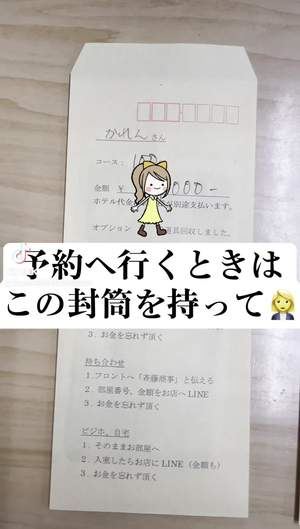 かれんさん
コース：
金額 ¥ 000-
ホテル代金 別途支払います。
オプション 道具回収しました。
予約へ行くときは
この封筒を持って
3．お金を忘れず頂く
待ち合わせ
1.フロントへ「斉藤商事」と伝える
2．部屋番号、金額をお店へ LINE
3．お金を忘れず頂く
ビジホ、自宅
1．そのままお部屋へ
2．入室したらお店に LINE（金額も）
3．お金を忘れず頂く